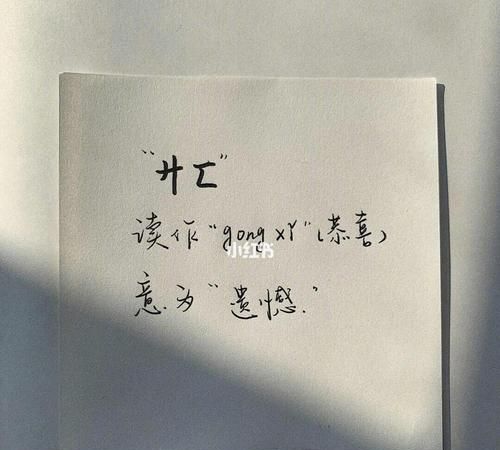 "廾匸"
读作"gong xǐ"(恭喜)
小红书
意为"遗憾."